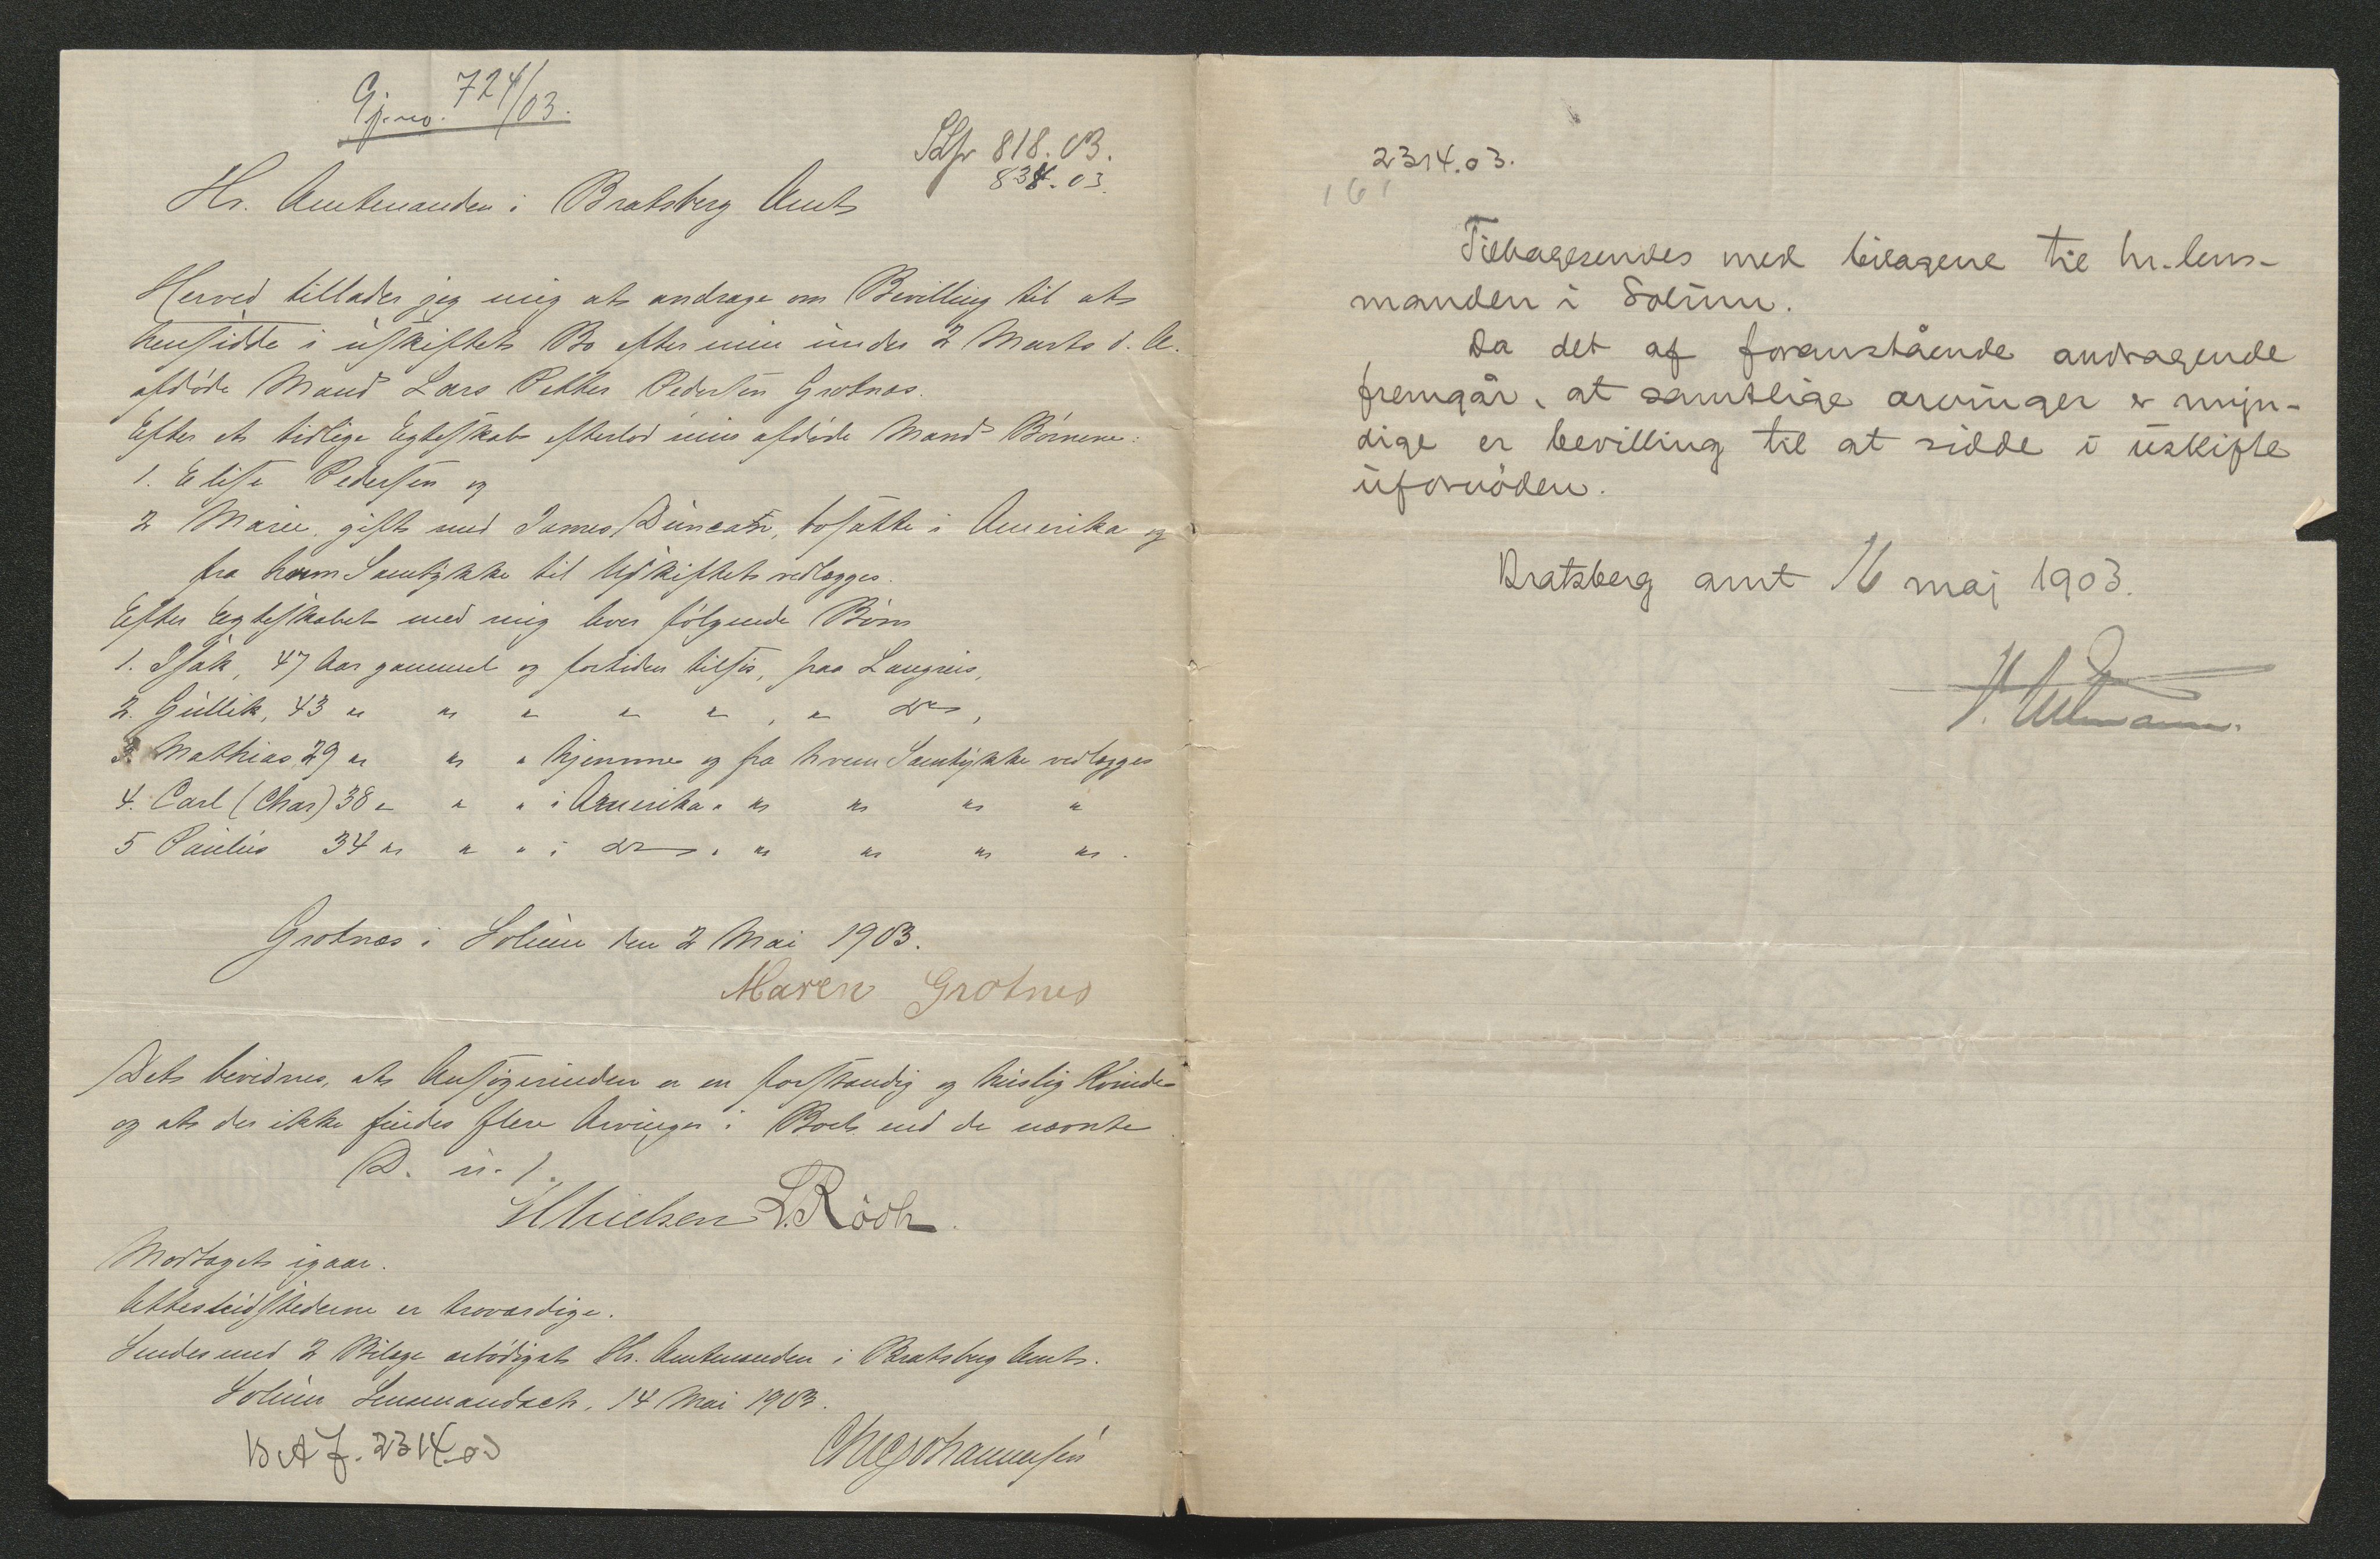 Gj.no. 724/03.
818.03.
838.03.
Hr. Amtmanden i Bratsberg Amt
Herved tillader jeg mig at andrage om Bevilling til at
hensidde i uskiftet Bo efter min under 2 Marts d. A.
afdøde Mand Lars Petter Pedersen Grotnæs.
Efter et tidlige Egteskab efterlod min afdøde Mand Børnene:
1. Elise Pedersen og
2 Marie, gift med James Duncan, bosatte i Amerika og
fra hvem Samtykke til Uskiftet vedlægges.
Efter Egteskabet med mig lever følgende Børn
1. Isak, 47 Aar gammel og fortiden tilsjøs, paa Langreis,
2. Gullik, 43 " " " " " , " do,
3. Mathias, 29 " " " hjemme og fra hvem Samtykke vedlægges
4. Carl (Chas) 38 " " " i Amerika " " " " "
5 Paulus 34 " " " i do " " " " " .
Grotnæs i Solum den 2 Mai 1903.
Maren Grotnes
Det bevidnes, at Ansøgerinden er en forstandig og huslig Kvinde
og at der ikke findes flere Arvinger i Boet end de nævnte
D. u. s.
Nielsen L. Rööh.
Modtaget igaar.
Attestudstederne er troværdige.
Sendes med 2 Bilage ærbødigst Hr. Amtmanden i Bratsberg Amt.
Solum Lensmandsct, 14 Mai 1903.
B A J. 2314.03
Johannessen
2314.03.
161
Tilbagesendes med bilagene til hr. lens-
manden i Solum.
Da det af foranstående andragende
fremgår, at samtlige arvinger er myn-
dige er bevilling til at sidde i uskifte
ufornöden.
Bratsberg amt 16 maj 1903.
V. Ullmann.